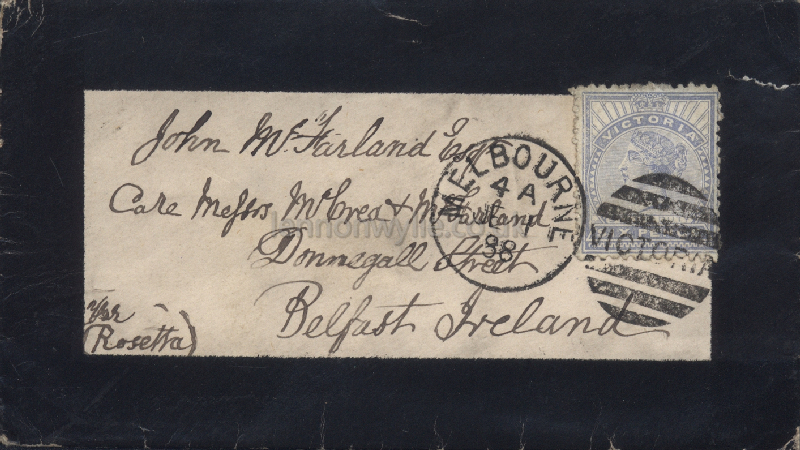 John McFarland Esq
Care Messrs McCrea & McFarland
Donnegall Street
Belfast Ireland
(Rosetta)
MELBOURNE
4 A
88
VICTORIA
VICTORIA
lennonwylie.co.uk